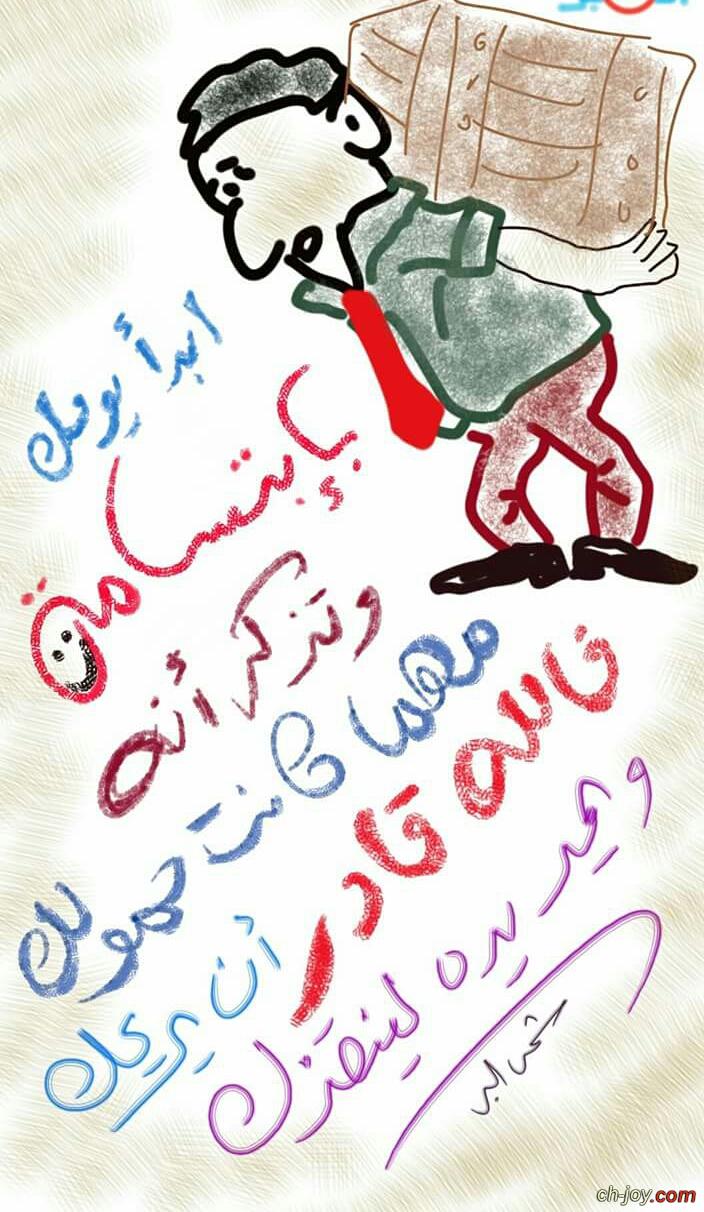 ابدأ يومك
بإبتسامة
وتذكر أنه
مهما كانت حمولك
فالله قادر
أن يريحك
ويمد يده لينقذك
ch-joy.com